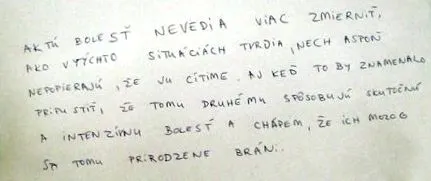 AK TÚ BOLESŤ NEVEDIA VIAC ZMIERNIŤ,
AKO V TÝCHTO SITUÁCIÁCH TVRDIA, NECH ASPOŇ
NEPOPIERAJÚ, ŽE JU CÍTIME. AJ KEĎ TO BY ZNAMENALO
PRIPUSTIŤ, ŽE TOMU DRUHÉMU SPÔSOBUJÚ SKUTOČNÚ
A INTENZÍVNU BOLESŤ A CHÁPEM, ŽE ICH MOZOG
SA TOMU PRIRODZENE BRÁNI.